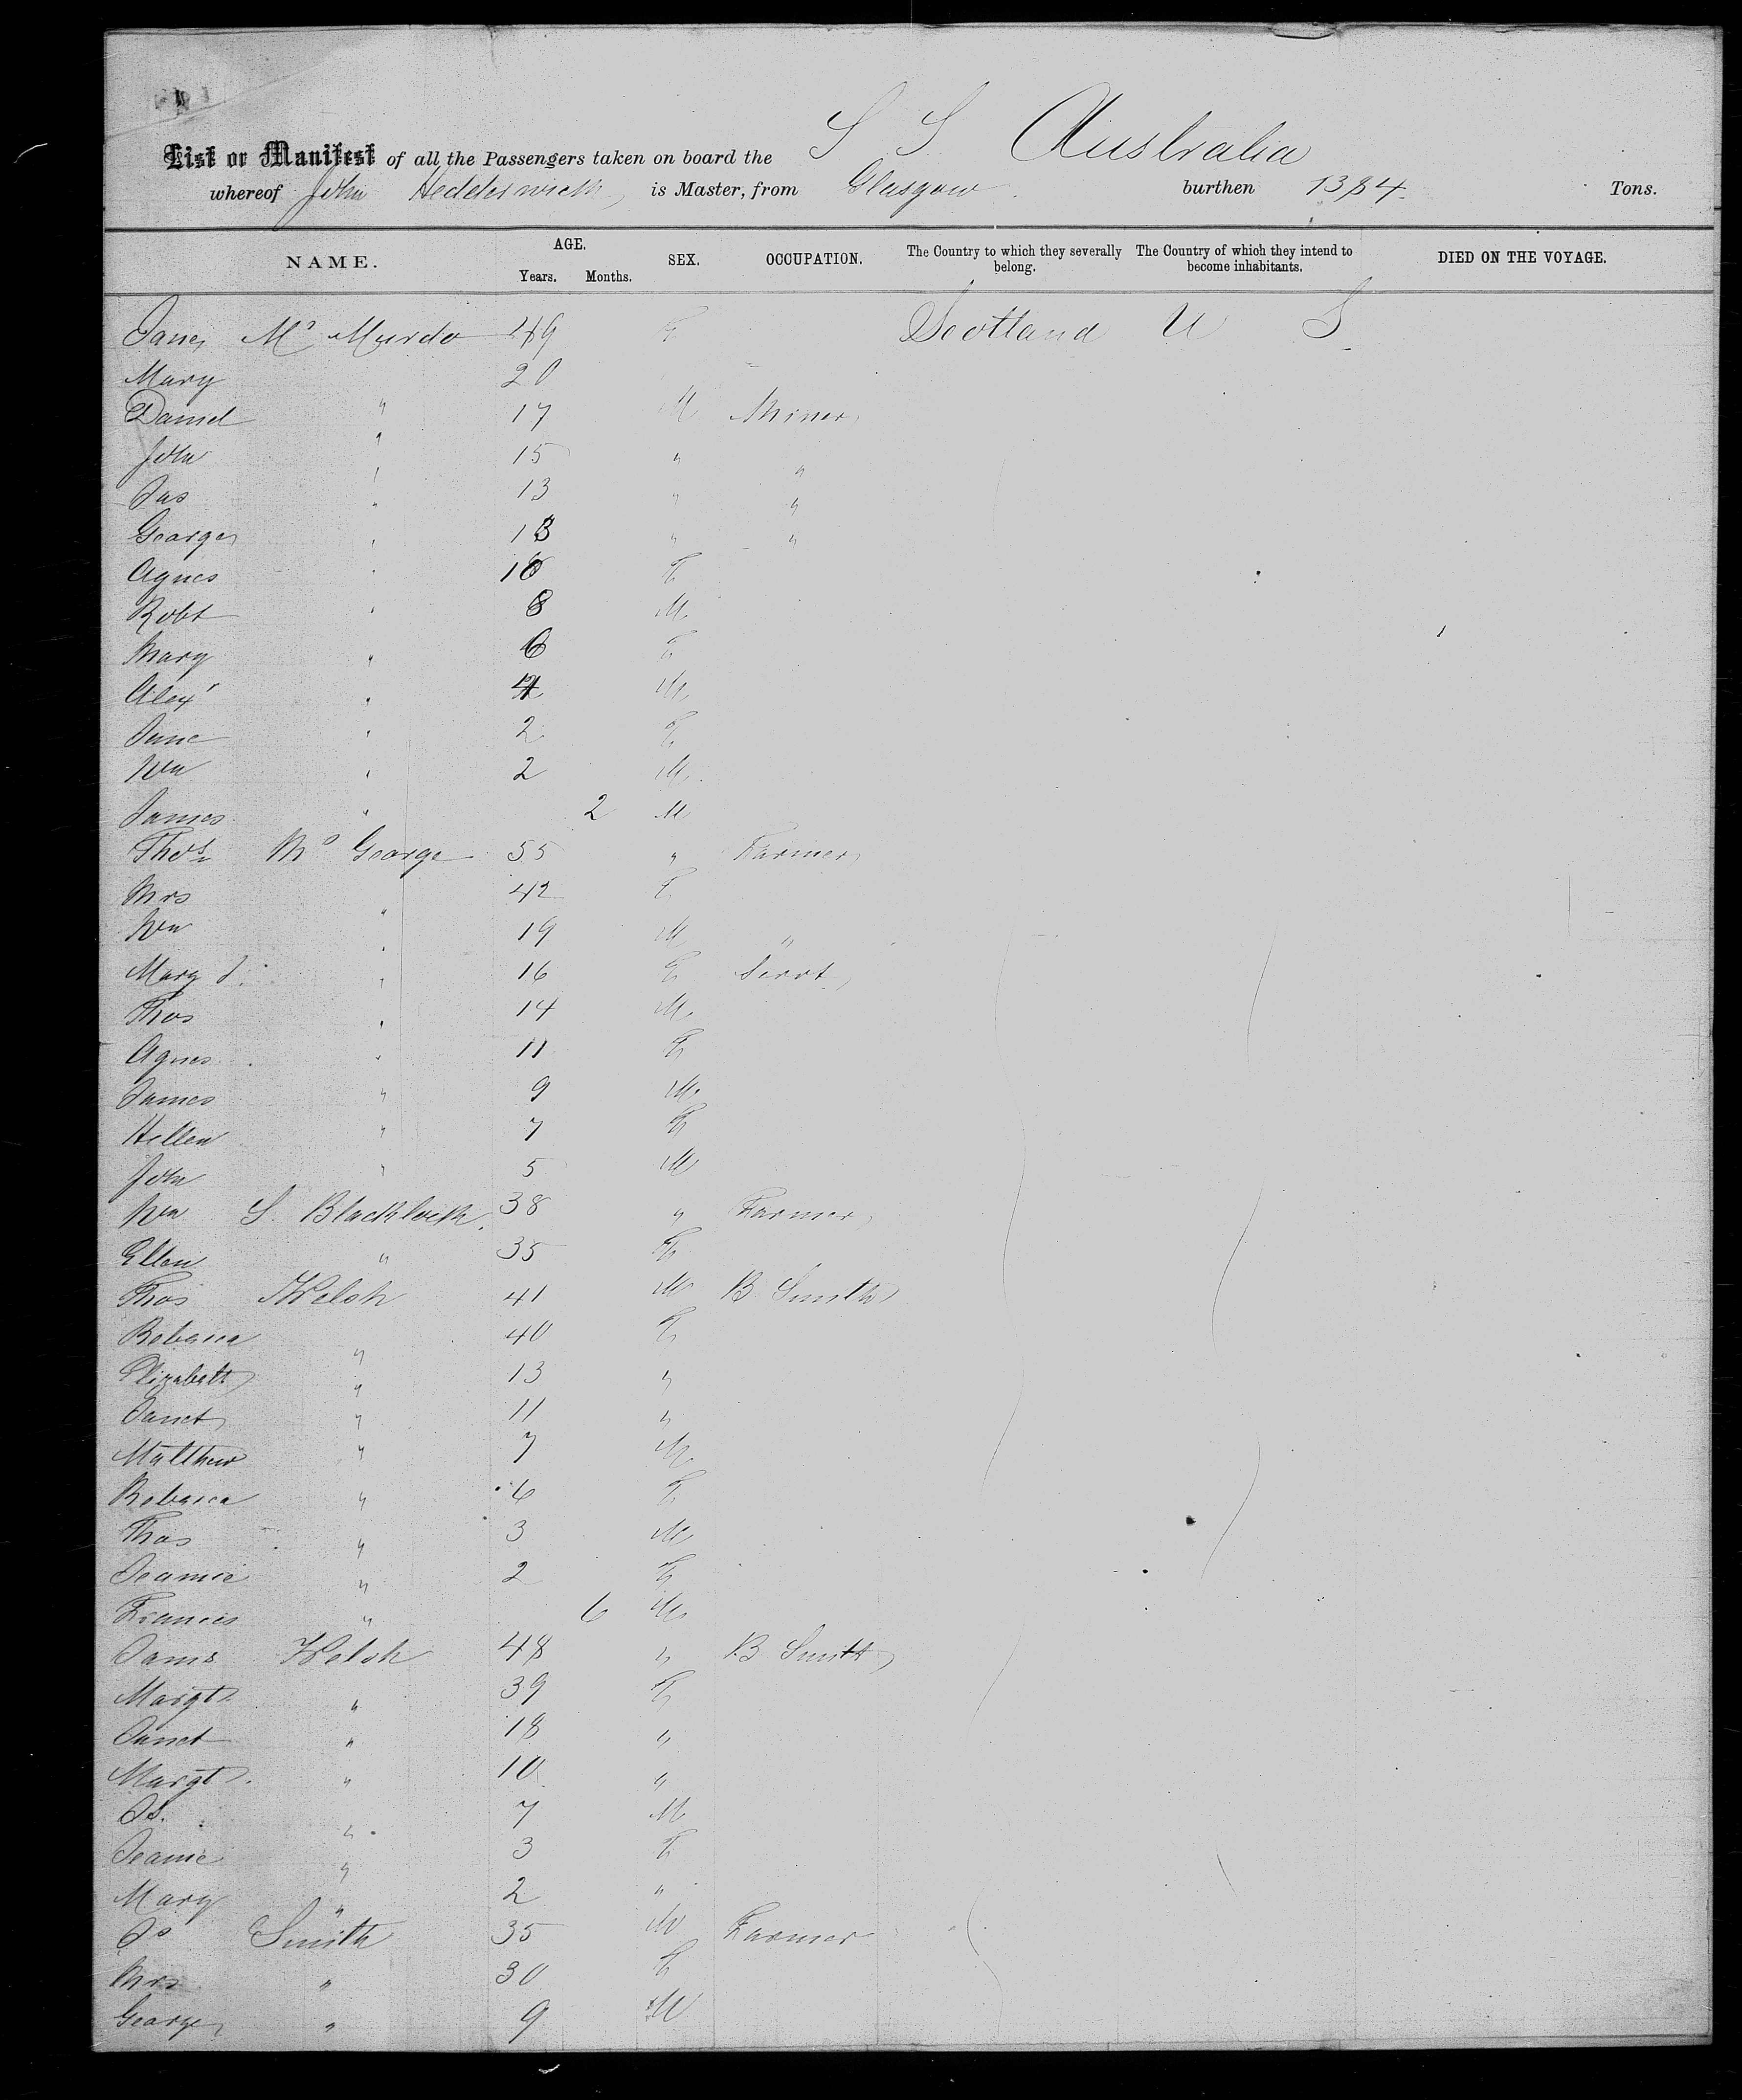 S S Australia
List or Manifest of all the Passengers taken on board the
whereof John Hedderwick is Master, from Glasgow burthen 1384 Tons.
NAME. AGE. Years. Months. SEX. OCCUPATION. The Country to which they severally belong. The Country of which they intend to become inhabitants. DIED ON THE VOYAGE.
Jane Mc Murdo 49 F Scotland U S
Mary 20
Daniel " 17 M Miner
John " 15 " "
Jas " 13 " "
George " 13 " "
Agnes " 10 F
Robt " 8 M
Mary " 6 F
Alexr " 4 M
Jane " 2 F
Wm " 2 M
James " 2 M
Thos Mc George 55 " Farmer
Mrs " 42 F
Wm " 19 M "
Mary J. " 16 F Servt
Thos " 14 M
Agnes " 11 F
James " 9 M
Hellen " 7 F
John " 5 M
Wm S. Blacklock 38 " Farmer
Ellen " 35 F
Thos Welsh 41 M B Smith
Rebecca " 40 F
Elizabeth " 13 "
Janet " 11 "
Matthew " 7 M
Rebecca " 6 F
Thos " 3 M
Jeamie " 2 F
Francis " 6 M
Jams Welsh 48 " B Smith
Margt " 39 F
Janet " 18 "
Margt " 10 "
Js. " 7 M
Jeanie " 3 F
Mary " 2 "
Js Smith 35 M Farmer
Mrs " 30 F
George " 9 M